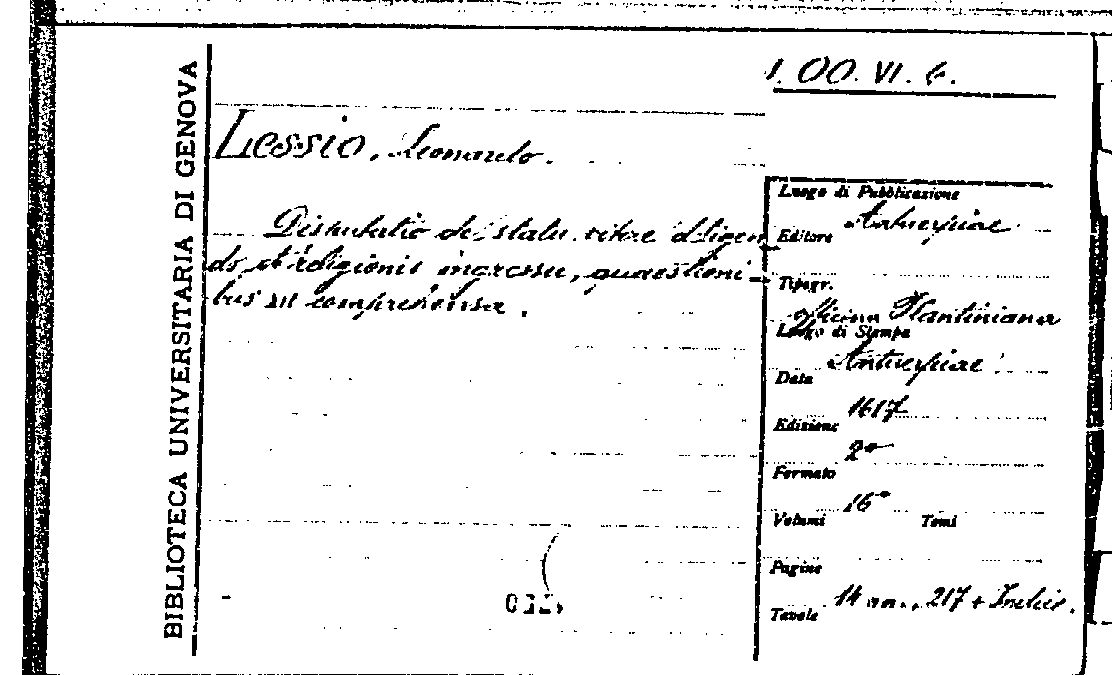 BIBLIOTECA UNIVERSITARIA DI GENOVA
1. OO. VI. 6.
Lessio, Leonardo.
Disputatio de statu vitae eligen
do et religionis ingressu, quaestioni-
bus comprehensa.
Luogo di Pubblicazione
Antuerpiae
Editore
Tipogr.
Officina Plantiniana
Luogo di Stampa
Antuerpiae
Data
1617
Edizione
2ª
Formato
16°
Volumi Tomi
Pagine
14 nn., 217 + Indic.
Tavole